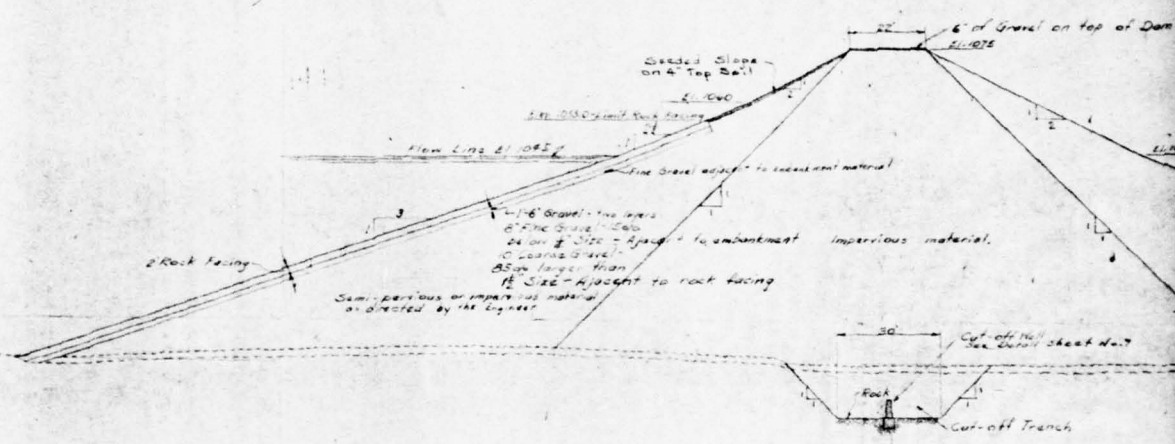 22'
6" of Gravel on top of Dam
El. 1075
Seeded Slope
on 4" Top Soil
2
1
El. 1060
El. 1055.0-Limit Rock Facing
2½
1
2
1
Flow Line El. 1045
Fine Gravel adjacent to embankment material
3
1
1'-6" Gravel - two layers
8" Fine Gravel
below ¼" Size - Ajacent to embankment
Impervious material.
10" Coarse Gravel -
85% larger than
1½" Size - Ajacent to rock facing
2' Rock Facing
Semi-pervious or impervious material
as directed by the Engineer
1
1
1
1
30'
Cut-off Wall
See Detail sheet No. 7
Rock
1
1
1
1
Cut-off Trench